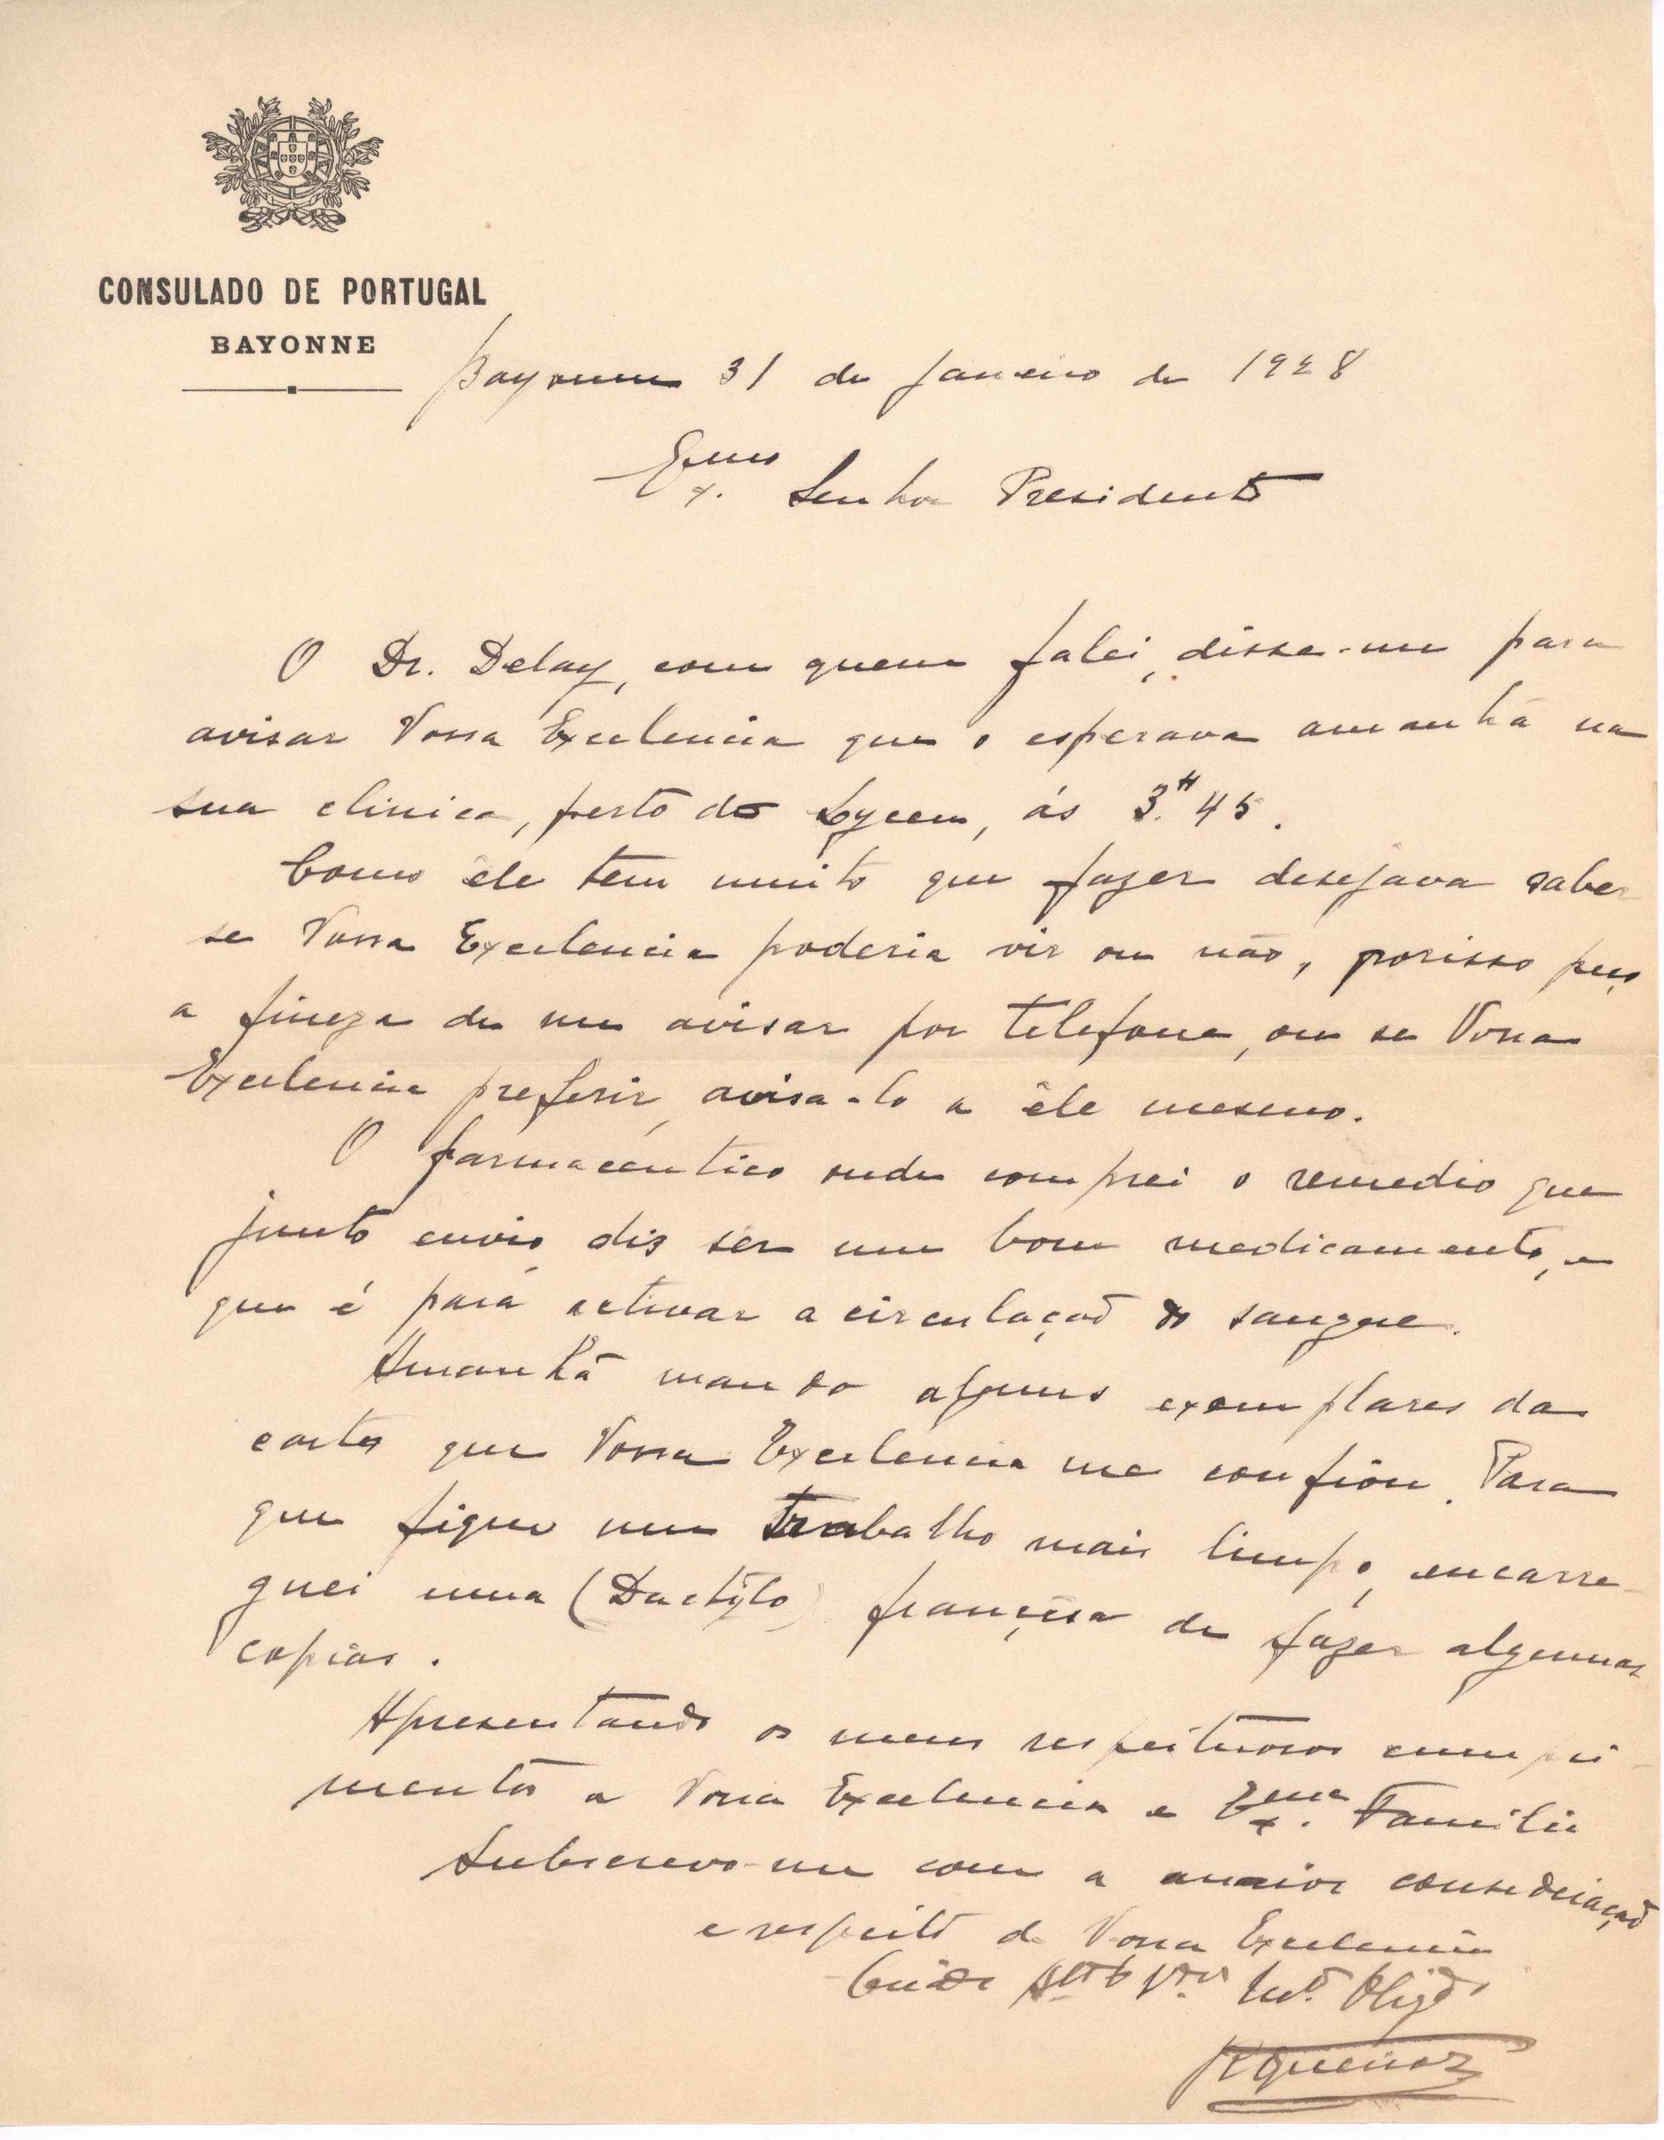 CONSULADO DE PORTUGAL
BAYONNE
Bayonne 31 de Janeiro de 1928
Exmo. Senhor Presidente
O Dr. Delay, com quem falei, disse-me para
avisar Vossa Excelencia que o esperava amanhã na
sua clinica, perto do Lyceu, ás 3H.45.
Como êle tem muito que fazer desejava saber
se Vossa Excelencia poderia vir ou não, porisso peço
a fineza de me avisar por telefone, ou se Vossa
Excelencia preferir, avisa-lo a êle mesmo.
O farmacêutico onde comprei o remedio que
junto envio, diz ser um bom medicamento, e
que é para activar a circulação do sangue.
Amanhã mando alguns exemplares da
carta que Vossa Excelencia me confiou. Para
que fique um trabalho mais limpo, encarre-
guei uma (Dactylo) françêsa de fazer algumas
copias.
Apresentando os meus respeitosos cumpri-
mentos a Vossa Excelencia e Exma. Familia
Subscrevo-me com a maior consideração
e respeito de Vossa Excelencia
Criado Atto Vor. Mto. Obgdo.